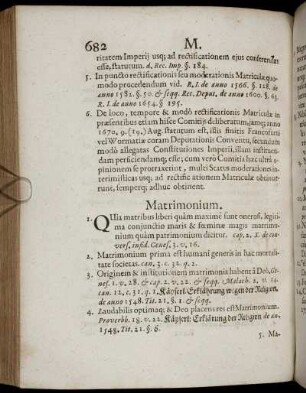 682 M.
ritatem Imperij usq; ad rectificationem ejus conferendas
esse, statutum. d. Rec. Imp. §. 184.
5. In puncto rectificationis seu moderationis Matriculæ quo-
modo procedendum vid. R. I. de anno 1566. §. 128. de
anno 1582. §. 50. & seqq. Rec. Deput. de anno 1600. §. 63.
R. I. de anno 1654. §. 195.
6. De loco, tempore & modò rectificationis Matriculæ in
præsentibus etiam hisce Comitijs deliberatum, atq; anno
1670, 9. (19.) Aug. statutum est, illis finitis Francofurti
vel Wormatiæ coram Deputationis Conventu, secundum
modò allegatas Constitutiones Imperij, illum instituen-
dam perficiendamq; esse; cum verò Comitia hac ultrà opi-
nionem se protraxerint, multi Status moderationis in-
terimisticas usq; ad rectificationem Matriculæ obtinue-
runt, semperq; adhuc obtinent.
Matrimonium.
1. QUia matribus liberi quàm maximè sunt onerosi, legiti-
ma conjunctio maris & fœminæ magis matrimo-
nium quàm patrimonium dicitur. cap. 2. X. de con-
vers. infid. Genes. 3. v. 16.
2. Matrimonium prima est humani generis in hac mortali-
tate societas. can. 3. c. 32. q. 2.
3. Originem & institutionem matrimonia habent à Deo, Ge-
nes. 1. v. 28. & cap. 2. v. 22. & seqq. Malach. 2. v. 14.
can. 12. c. 31. q. 1. Käyserl. Erklährung wegen der Religion.
de anno 1548. Tit. 21. §. 1. & seqq.
4. Laudabilis optimaq; & Deo placens res est Matrimonium.
Proverb. 18. v. 22. Käyserl. Erklärung der Religion de an.
1548. Tit. 21. §. 6.
5. Ma-